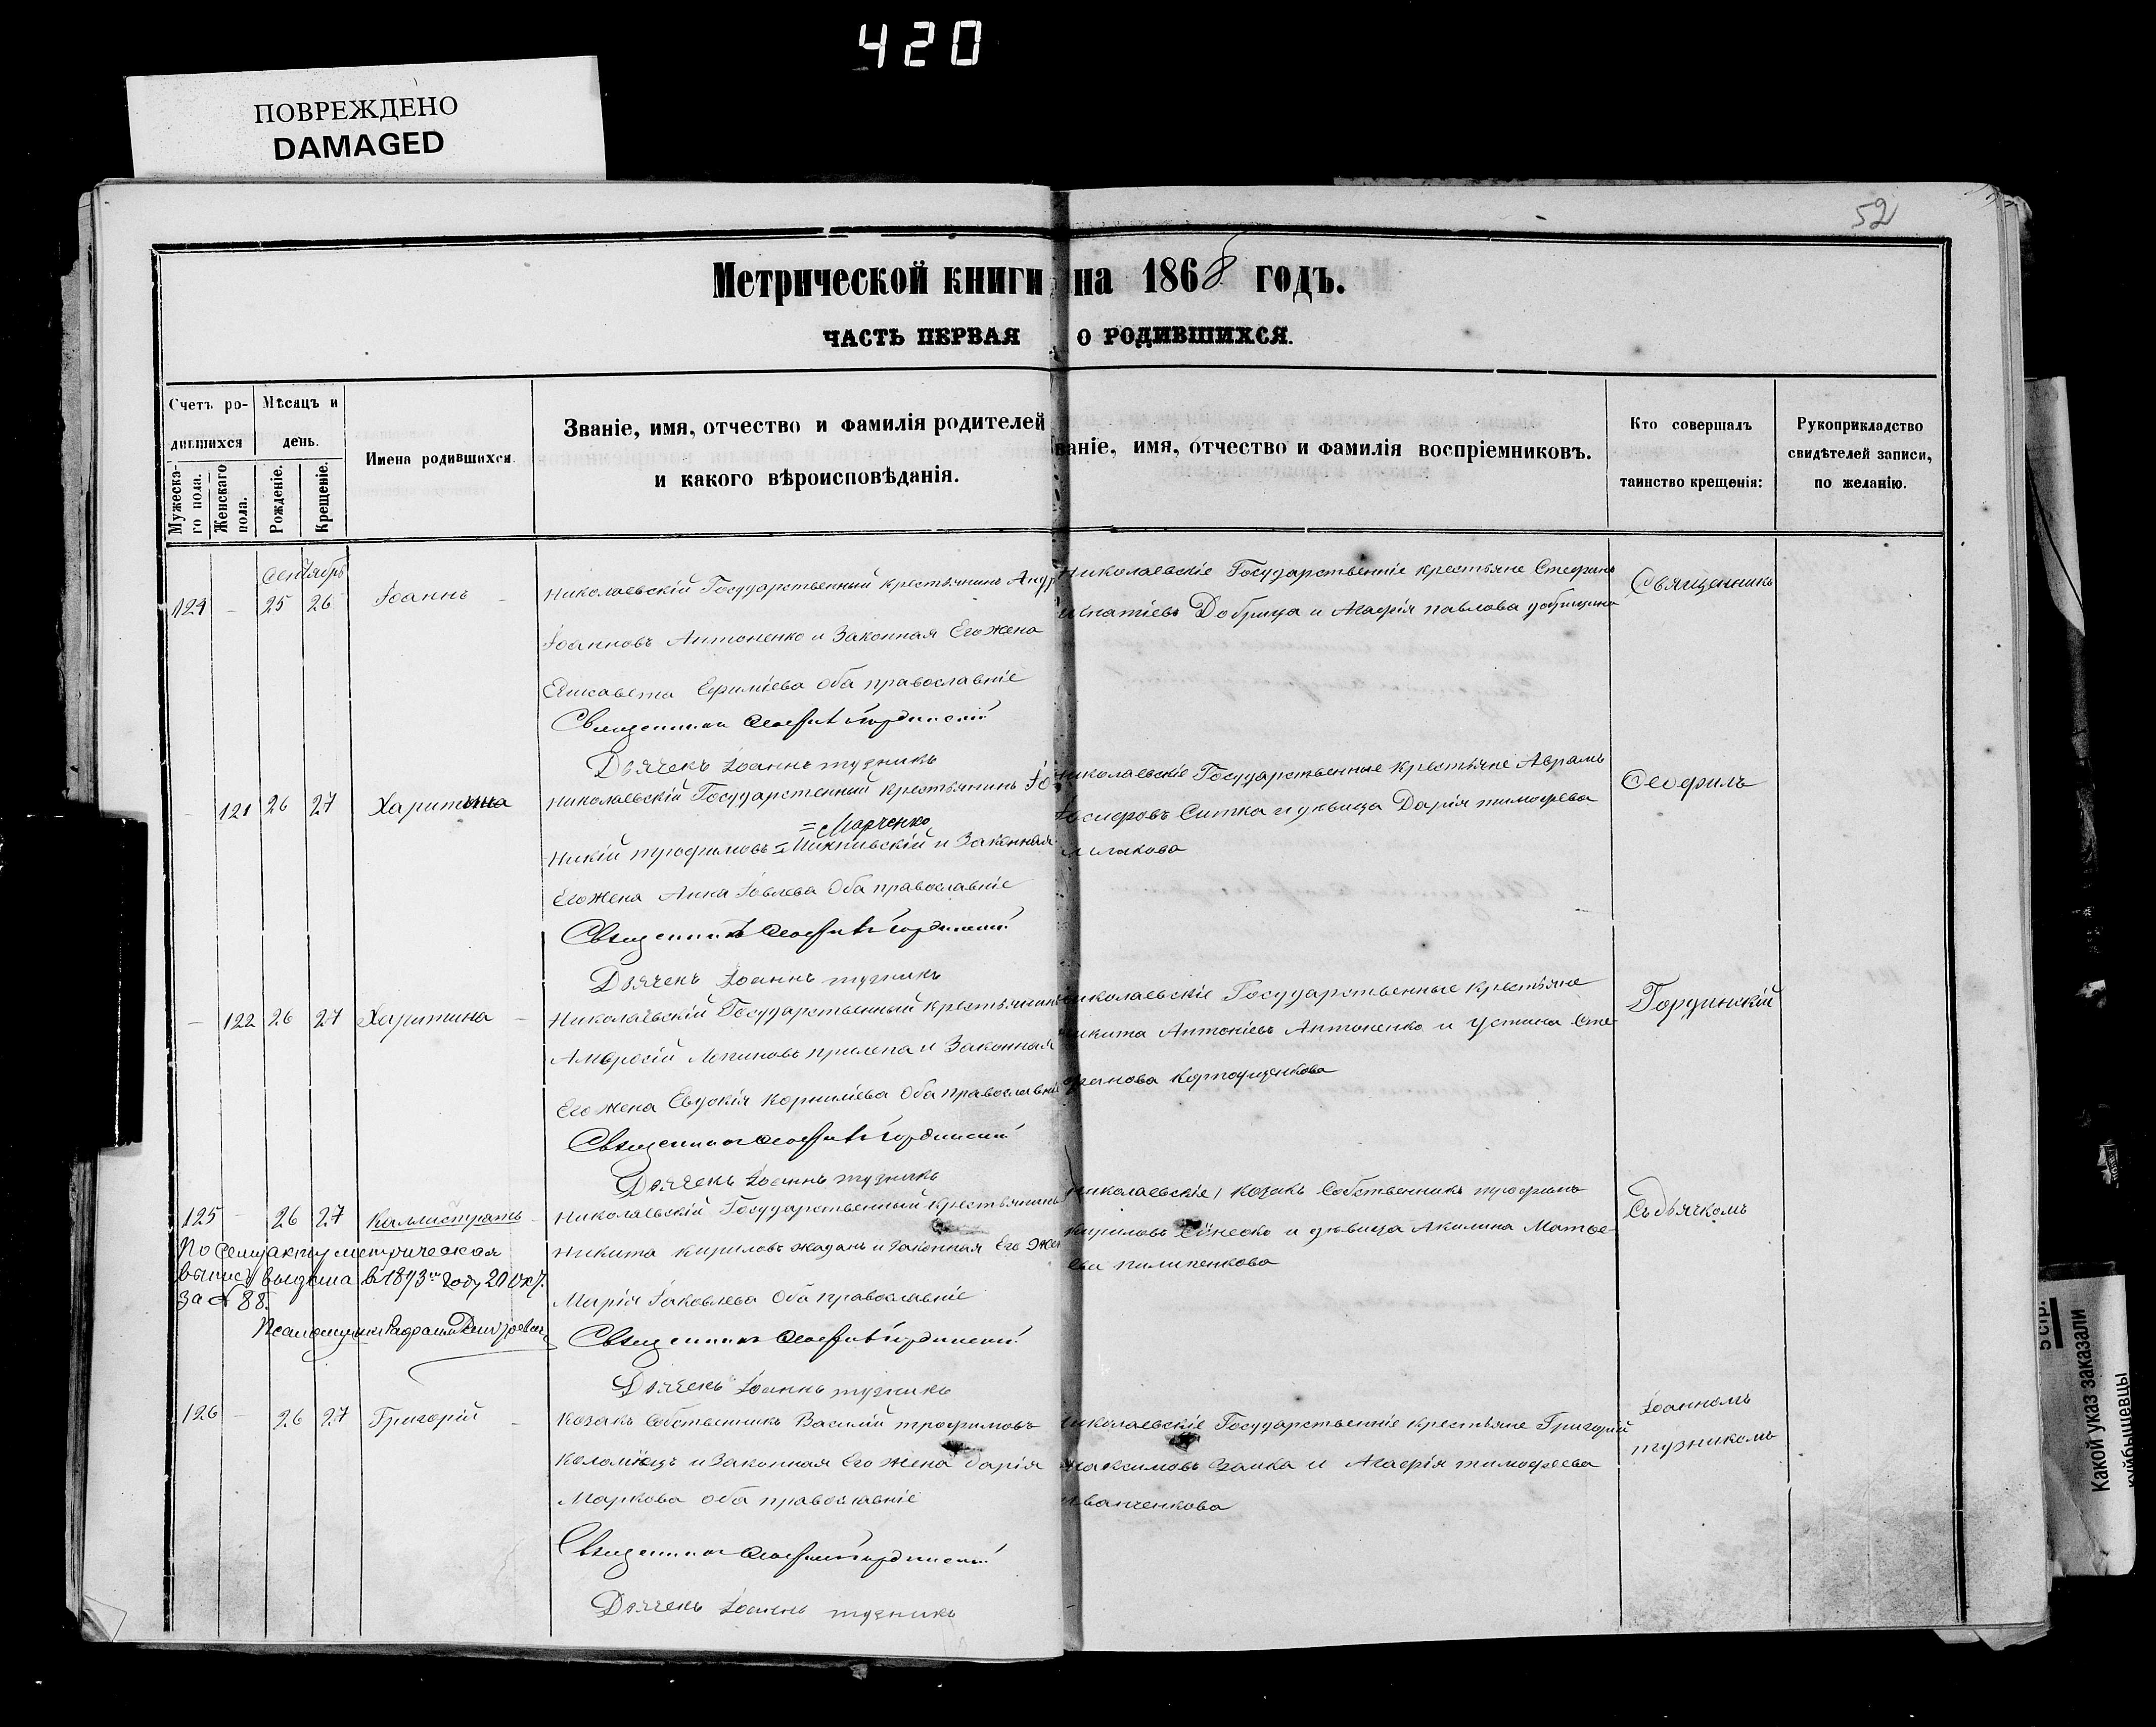 420
ПОВРЕЖДЕНО
DAMAGED
52
Метрической книги на 1868 годъ.
ЧАСТЬ ПЕРВАЯ О РОДИВШИХСЯ.
Счетъ ро-
дившихся
Мужеска-
го пола.
Женскаго
пола.
Мѣсяцъ и
день.
Рожденіе.
Крещеніе.
Имена родившихся.
Званіе, имя, отчество и фамилія родителей
и какого вѣроисповѣданія.
ваніе, имя, отчество и фамилія воспріемниковъ.
Кто совершалъ
таинство крещенія:
Рукоприкладство
свидѣтелей записи,
по желанію.
сентябрь
124 - 25 26 Іоаннъ
Николаевскій Государственный крестьянинъ Андр
Іоанновъ Антоненко и Законная Его жена
Елисавета Ефиміева Оба православніе
Священникъ Ѳеофилъ Гординскій
Дьячекъ Іоаннъ тузникъ
Николаевскіе Государственніе крестьяне Стефанъ
Игнатіевъ Добрица и Агафія павлова
Священникъ
- 121 26 27 Харитина
Николаевскій Государственный крестьянинъ Іо
Никій трофимовъ = Марченко
и Законная
Его Жена Анна Іовлева Оба православніе
Священникъ Ѳеофилъ Гординскій
Дьячекъ Іоаннъ тузникъ
Николаевскіе Государственные крестьяне Аврамъ
Ситка и дѣвица Дарія тимофеева
Ѳеофилъ
- 122 26 27 Харитина -
Николаевскій Государственный крестьянинъ
Амвросій Логиновъ прилепа и Законная
Его жена Евдокія Корниліева Оба православніе
Священникъ Ѳеофилъ Гординскій
Дьячекъ Іоаннъ тузникъ
Николаевскіе Государственные крестьяне
Никита Антоніевъ Антоненко и Устина Сте-
фанова
Гординскій
125 - 26 27 Каллистратъ -
По сему акту метрическая
выпись выдана въ 1893 году 20 Окт.
за № 88.
Николаевскій Государственный крестьянинъ
Никита Кириловъ жадань и законная Его Жена
Марія Іаковлева Оба православніе
Священникъ Ѳеофилъ Гординскій
Дьячекъ Іоаннъ тузникъ
Николаевскіе, козакъ Собственникъ трофимъ
Кириловъ и дѣвица Акилина Матфе-
ева пилипенкова
Съ дьячкомъ
126 - 26 27 Григорій -
Козакъ Собственникъ Василій трофимовъ
Коломіецъ и Законная Его жена Дарія
Маркова оба православніе
Священникъ Ѳеофилъ Гординскій
Дьячекъ Іоаннъ тузникъ
Николаевскіе Государственніе крестьяне Григорій
Максимовъ Заика и Агафія тимофеева
Иванченкова
Іоанномъ
тузникомъ
5 стр.
Какой указ заказали
куйбышевцы